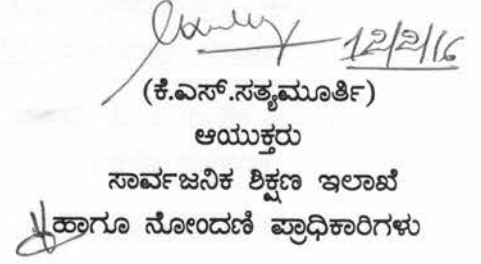 12/2/16
(ಕೆ.ಎಸ್.ಸತ್ಯಮೂರ್ತಿ)
ಆಯುಕ್ತರು
ಸಾರ್ವಜನಿಕ ಶಿಕ್ಷಣ ಇಲಾಖೆ
ಹಾಗೂ ನೋಂದಣಿ ಪ್ರಾಧಿಕಾರಿಗಳು